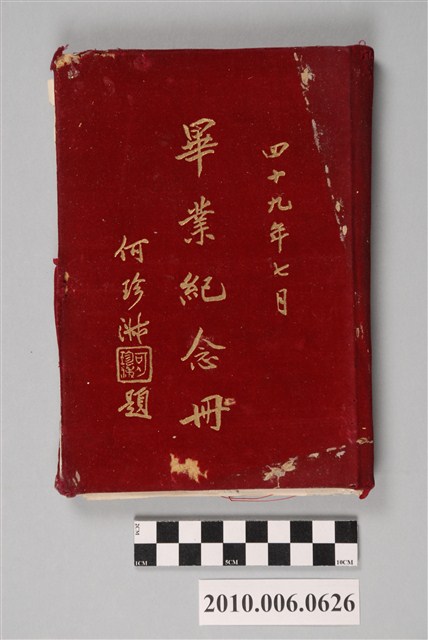 四十九年七月
畢業紀念冊
何珍淋題
2CM
1CM
5CM
10CM
2010.006.0626